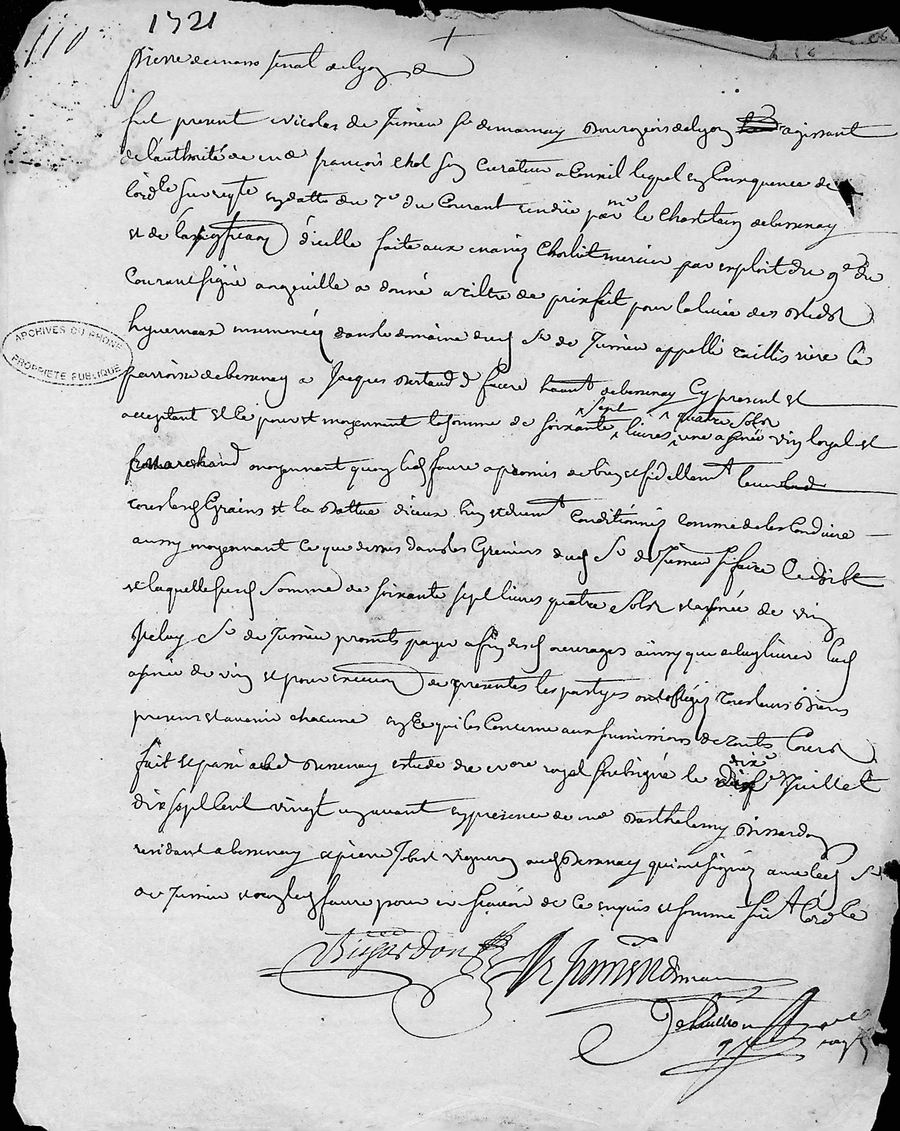 110 1721
Pierre de mass senal de lyon
fut present Nicolas de Jussieu Sr demarnay Bourgeois de lyon agissant
de l'authorité de me françois Chol son curateur a Conseil lequel en Consequence de
lord.le sur reqte en datte du 7e du Courant rendüe par mr le Chastelain de bessenay
et de la signiffication d'icelle faite aux mariez mercier par exploit du 9e du
Courant signé a donné a tiltre de prixfait pour la levée des bleds
hyvernaux ensemencés dans le domaine dud Sr de Jussieu appellé taillis rière la
parroisse de bessenay a Jacques Bertaud d faure hautt de bessenay Cy present et
acceptant et ce pour et moyennant la somme de soixante sept livres quatre solz une asnée vin loyal et
Marchand moyennant quoy led faure a promis de bien et fidellemt
tous lesd Grains et la Battue d'iceux bien et duemt Conditionnés Comme de les Conduire
aussy moyennant Ce que dessus dans les Greniers dud Sr de Jussieu
et laquelle susd Somme de soixante sept livres quatre Solz et asnée de vin
Iceluy Sr de Jussieu promet payer a fin desd ouvrages ainsy que deluy livrer lad
asnée de vin et pour execution de presentes les partyes ont obligéz tous leurs Biens
presens et avenir chacune en Ce qui les Concerne aux submissions de toutes Cours
fait et passé aud Bessenay estude du nore royal soubsigné le dixe Juillet
dix sept Cent vingt un avant en presence de me Barthelemy Bissardon
residant a bessenay et pierre vigneron aud Bessenay qui ont signéz avec led Sr
de Jussieu et non led faure pour ne sçavoir de ce enquis et sommé suivt l'ord.le
Bissardon De Jussieu demarnay
ARCHIVES DU RHONE
PROPRIETE PUBLIQUE